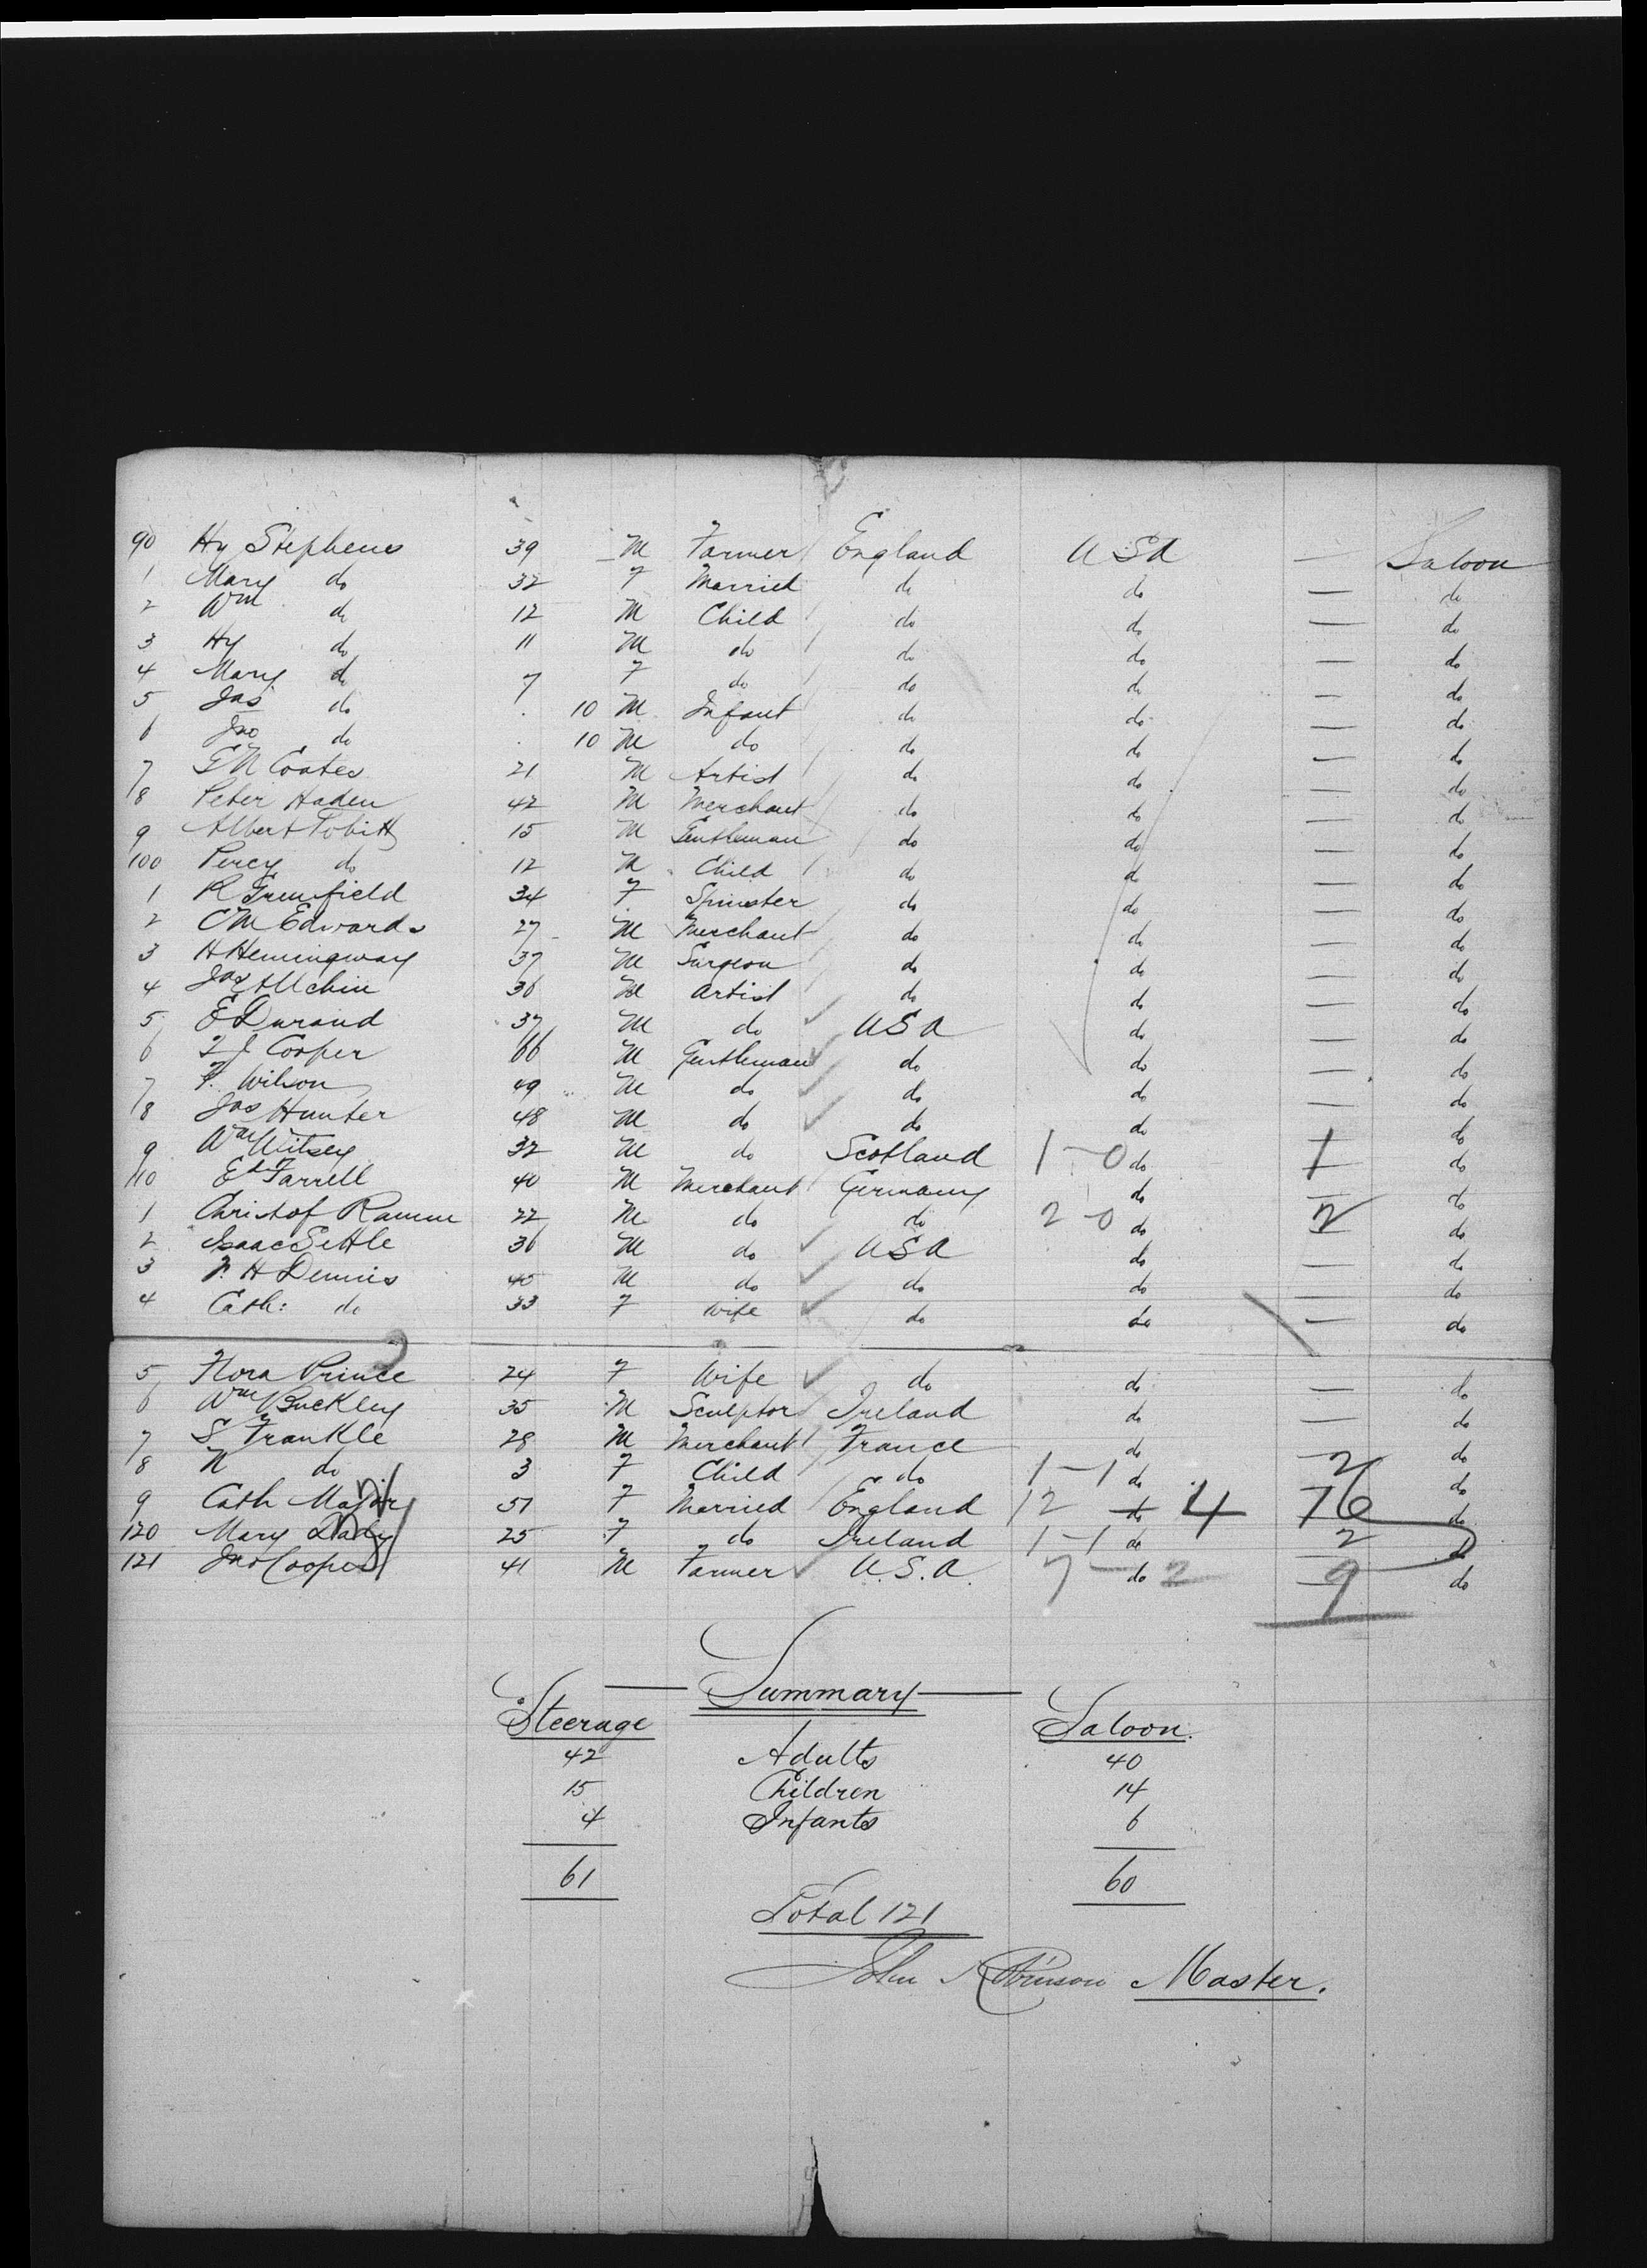 90 Hy Stephens 39 M Farmer England USA — Saloon
1 Mary do 32 F Married do do — do
2 Wm do 12 M Child do do — do
3 Hy do 11 M do do do — do
4 Mary do 7 F do do do — do
5 Jas do 10 M Infant do do — do
6 Jno do 10 M do do do — do
7 Coates 21 M Artist do do — do
8 Peter Haden 42 M Merchant do do — do
9 Albert Tobitt 15 M Gentleman do do — do
100 Percy do 12 M Child do do — do
1 R Greenfield 34 F Spinster do do — do
2 C M Edwards 27 M Merchant do do — do
3 H Hemingway 37 M Surgeon do do — do
4 Jas 36 M Artist do do — do
5 E Durand 37 M do USA do — do
6 Cooper 66 M Gentleman do do — do
7 F. Wilson 49 M do do do — do
8 Jas Hunter 48 M do do do — do
9 Wm 32 M do Scotland 1-0 do 1 do
110 Ed Farrell 40 M Merchant Germany do — do
1 Christof Ramm 22 M do do 2-0 do 2 do
2 Isaac Settle 36 M do USA do — do
3 H Dennis 45 M do do do — do
4 Cath: do 33 F Wife do do — do
5 Flora Prince 24 F Wife do do — do
6 Wm Buckley 35 M Sculptor Ireland do — do
7 S Frankle 28 M Merchant France do — do
8 N do 3 F Child do 1-1 do 2 do
9 Cath Major 51 F Married England 12 do 4 do
120 Mary 25 F do Ireland 1-1 do 2 do
121 Jno Cooper 41 M Farmer U.S.A. 7 - do 2 9 do
Summary
Steerage Saloon.
42 Adults 40
15 Children 14
4 Infants 6
61 60
Total 121
John Robinson Master.